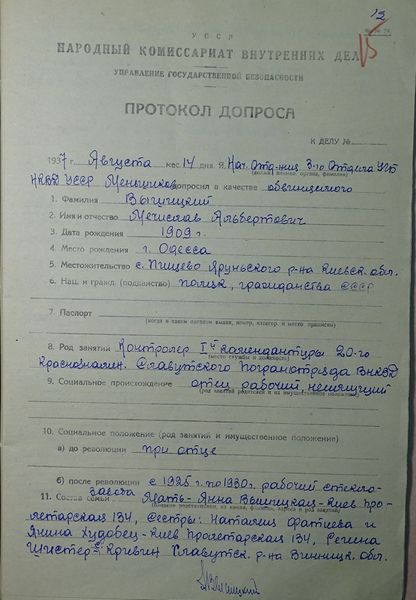 12
15
УССР
НАРОДНЫЙ КОМИССАРИАТ ВНУТРЕННИХ ДЕЛ
УПРАВЛЕНИЕ ГОСУДАРСТВЕННОЙ БЕЗОПАСНОСТИ
ПРОТОКОЛ ДОПРОСА
К ДЕЛУ №
1937 г. Августа мес. 14 дня Я, Нач. Отд-ния 3-го Отдела УГБ
НКВД УССР Меньшиков допросил в качестве обвиняемого
1. Фамилия Вышицкий
2. Имя и отчество Мечислав Альбертович
3. Дата рождения 1909 г.
4. Место рождения г. Одесса
5. Местожительство с. Пищево Яруньского р-на Киевск. обл.
6. Нац. и гражд. (подданство) поляк, гражданства СССР
7. Паспорт
(когда и каким органом выдан, номер, категор. и место прописки)
8. Род занятий Контролер Iй комендантуры 20-го
(место службы и должность)
Краснознамен. Славутского погранотряда ВНКВД
9. Социальное происхождение отец рабочий неимущий
(род занятий родителей и их имущественное положение)
10. Социальное положение (род занятий и имущественное положение)
а) до революции при отце
б) после революции с 1925 г. по 1930 г. рабочий стекло-
завода
11. Состав семьи Мать - Янна Вышицкая - Киев Про-
летарская 134, Сестры: Наталия Фатиева и
Янина Худовец - Киев Пролетарская 134, Регина
Шистер с. Кривин Славутск. р-на Винницк. обл.